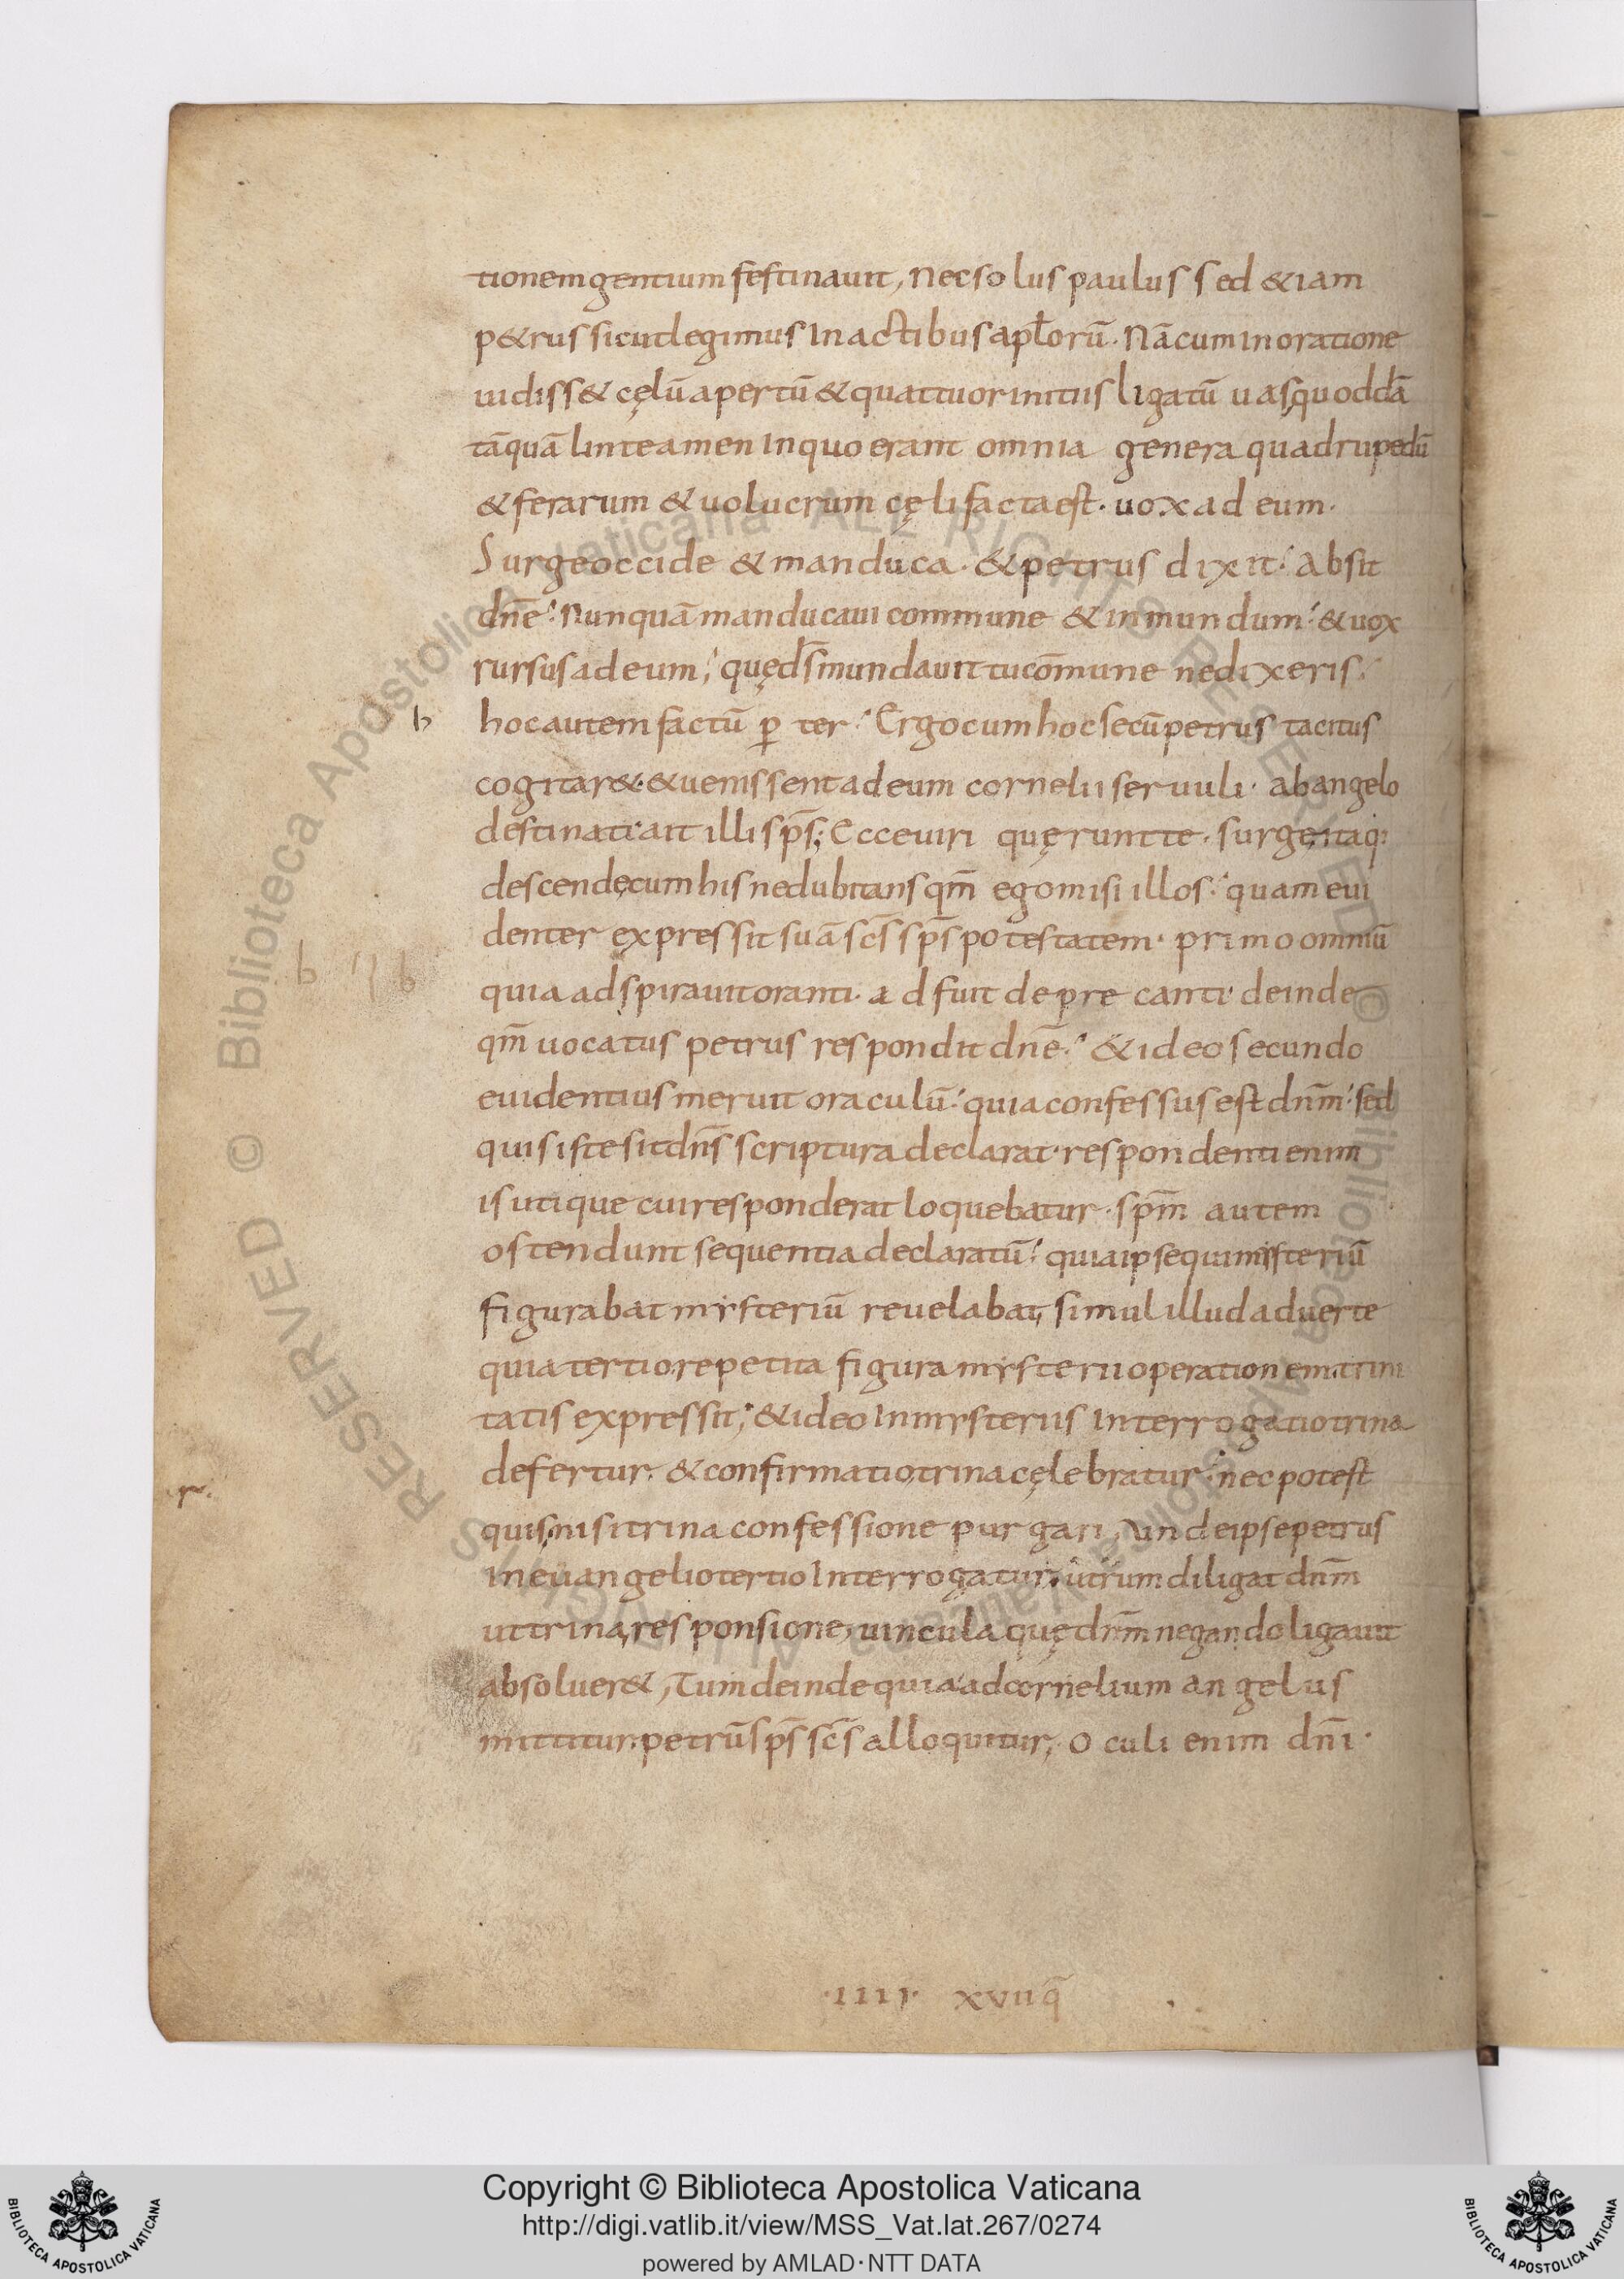 tionem gentium festinauit, Nec solus paulus sed &iam
p&rus sicut legimus In actibus apłorū. Nā cum In oratione
uidiss& cęlū apertū & quattuor initiis ligatū uas quoddā
tāquā linteamen In quo erant omnia genera quadrupedū
& ferarum & uolucrum cęli facta est. uox ad eum.
Surge occide & manduca. & petrus dixit: Absit
dn̄e: Nunquā manducaui commune & inmundum: & uox
rursus ad eum; quę ds̄ mundauit tu cōmune ne dixeris:
h hoc autem factū ꝑ ter: Ergo cum hoc secū petrus tacitus
cogitar&. & uenissent ad eum cornelii seruuli. ab angelo
destinati ait illi sp̄s; Ecce uiri quęrunt te. surge itaq:
descendę cum his ne dubitans qm̄ ego misi illos: quam eui
denter expressit suā sc̄s sp̄s potestatem. primo omniū
b b
quia adspirauit oranti. adfuit deprecanti deinde
qm̄ uocatus petrus respondit dn̄e: & ideo secundo
euidentius meruit oraculū: quia confessus est dn̄m: sed
quis iste sit dn̄s scriptura declarat. respondenti enim
is utique cui responderat loquebatur. sp̄m autem
ostendunt sequentia declaratū: quia ipse qui misteriū
figurabat mẏsteriū reuelabat, simul illud aduerte
quia tertio repetita figura mẏsterii operationem trini
tatis expressit; & ideo In mẏsteriis Interrogatio trina
defertur. & confirmatio trina cęlebratur: nec potest
r.
quis nisi trina confessione purgari, unde ipse petrus
In euangelio tertio Interrogatur, utrum diligat dn̄m
ut trina responsione, uincula quę dn̄m negando ligauit
absoluer&, Tum deinde quia ad cornelium angelus
mittitur. petrū sp̄s sc̄s alloquitur, Oculi enim dn̄i.
.IIII. XVII q̄
Copyright © Biblioteca Apostolica Vaticana
http://digi.vatlib.it/view/MSS_Vat.lat.267/0274
powered by AMLAD · NTT DATA
BIBLIOTECA APOSTOLICA VATICANA
BIBLIOTECA APOSTOLICA VATICANA
© Biblioteca Apostolica Vaticana ALL RIGHTS RESERVED
© Biblioteca Apostolica Vaticana ALL RIGHTS RESERVED